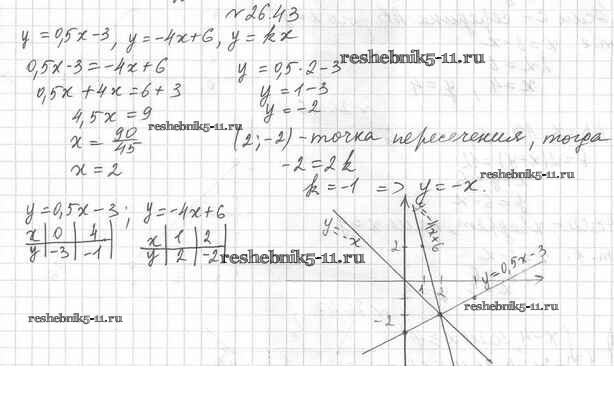 №26.43
y = 0,5x-3, y = -4x+6, y = kx
0,5x-3 = -4x+6
0,5x + 4x = 6 + 3
4,5x = 9
x = 90/45
x = 2
y = 0,5·2-3
y = 1-3
y = -2
(2; -2) - точка пересечения, тогда
-2 = 2k
k = -1 => y = -x.
y = 0,5x-3; y = -4x+6
x | 0 | 4
y | -3 | -1
x | 1 | 2
y | 2 | -2
y = -x
y = -4x+6
y = 0,5x-3
2
1 2
-2
reshebnik5-11.ru
reshebnik5-11.ru
reshebnik5-11.ru
reshebnik5-11.ru
reshebnik5-11.ru
reshebnik5-11.ru